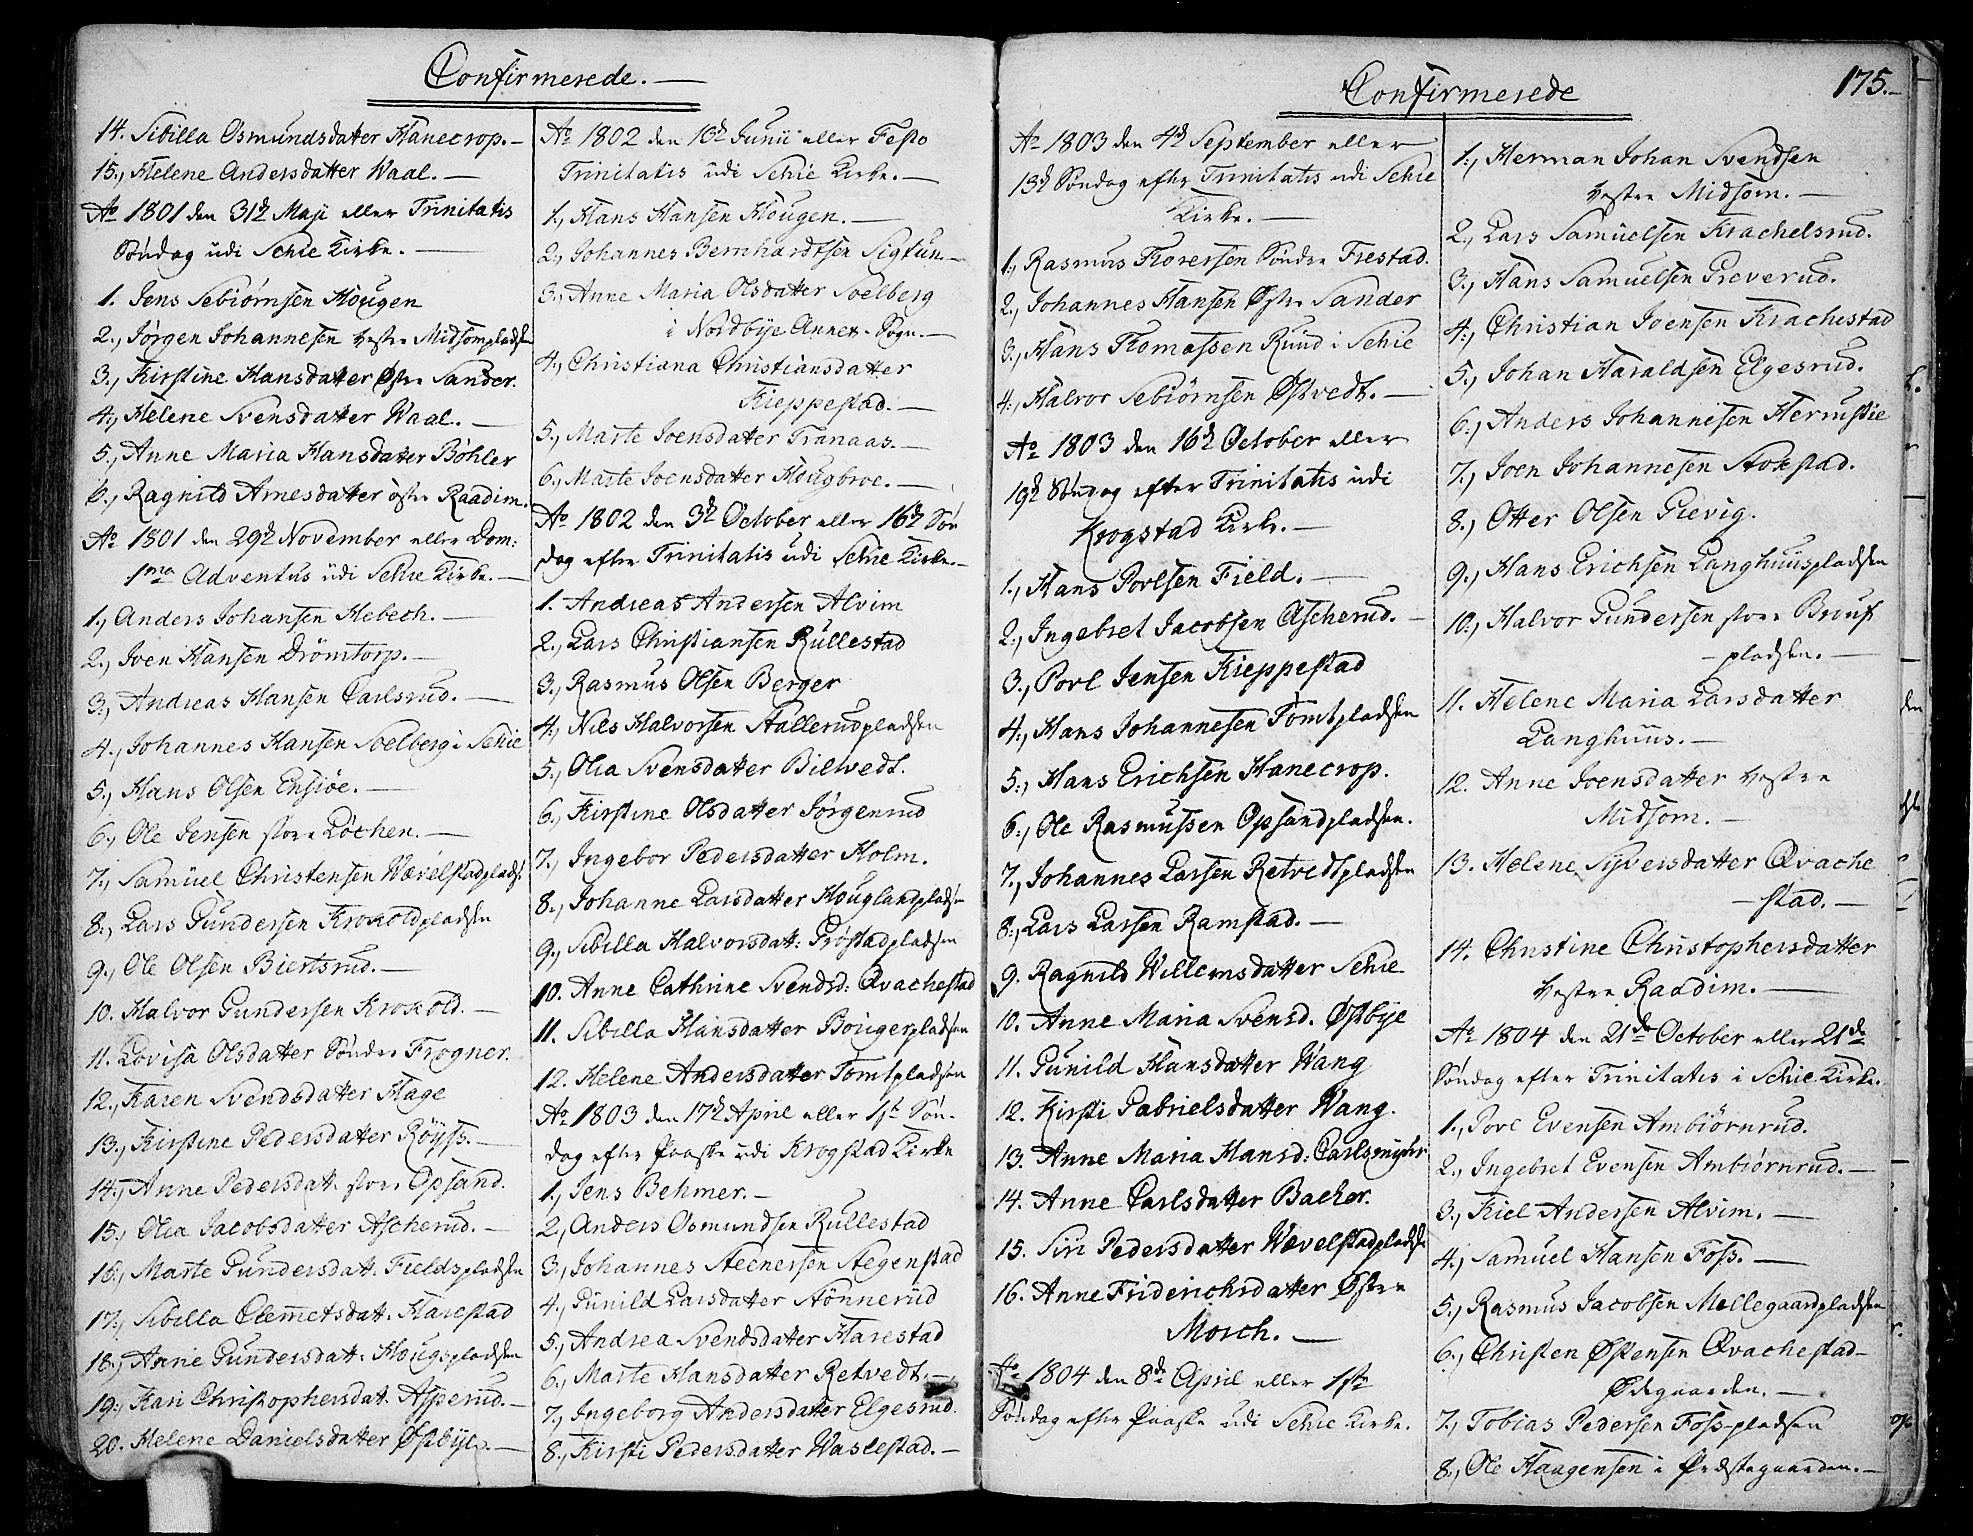 Confirmerede.
14. Sibilla Osmundsdatter Hanecrop.
15., Helene Andersdatter Waal.
Ao 1801 den 31te Maji eller Trinitatis
Søndag udi Schie Kirke.
1. Jens Sebiørnsen Hougen
2., Jørgen Johannesen Vestre Midsompladsen
3., Kirstine Hansdatter Østre Sander.
4., Helene Svensdatter Waal.
5., Anne Maria Hansdatter Bøhler
6., Ragnild Arnesdatter østre Raadim.
Ao 1801 den 29de November eller Dom:
1ma Adventus udi Schie Kirke.
1., Anders Johansen Hebech.
2., Joen Hansen Drömtorp.
3., Andreas Hansen Carlsrud.
4., Johannes Hansen Soelberg i Schie
5., Hans Olsen Ensiøe.
6., Ole Jensen store Løchen.
7., Samuel Christensen Wævelstadplads:
8., Lars Gundersen Kroxoldpladsen
9., Ole Olsen Biertsrud.
10. Halvor Gundersen Kroxold.
11. Lovisa Olsdatter Søndre Frogner.
12., Karen Svendsdatter Hage
13., Kirstine Pedersdatter Röyss.
14., Anne Pedersdat. store Opsand.
15., Olia Jacobsdatter Ascherud.
16., Marte Gundersdatt. Fieldspladsen
17., Sibilla Clemetsdatt. Harestad
18., Anne Gundersdatt. Hougspladsen
19., Kari Christophersdat. Asperud.
20. Helene Danielsdatter Østbye.
Ao 1802 den 13de Junii eller Festo
Trinitatis udi Schie Kirke.
1., Hans Hansen Hougen.
2., Johannes Bernhardtsen Sigtun.
3., Anne Maria Olsdatter Soelberg
i Nordbye Annex-Sogn.
4., Christiana Christiansdatter
Kieppestad.
5., Marte Joensdatter Tranaas.
6., Marte Joensdatter Hougbroe.
Ao 1802 den 3de October eller 16de Søn
dag efter Trinitatis udi Schie Kirke.
1. Andreas Andersen Alvim
2., Lars Christiansen Rullestad
3., Rasmus Olsen Berger
4., Nils Halvorsen Stallerudpladsen
5., Olia Svensdatter Bilwedt.
6., Kirstine Olsdatter Jørgenrud
7., Ingebor Pedersdatter Holm.
8., Johanne Larsdatter Houglandpladsen
9., Sibilla Halvorsdatt: Prøstadpladsen
10. Anne Cathrine Svendsd: Qvachestad
11. Sibilla Hansdatter Bougerpladsen
12. Helene Andersdatter Tomtpladsen
Ao 1803 den 17de April eller 1ste Søn-
dag efter Paaske udi Krogstad Kirke
1., Jens Behmer.
2., Anders Osmundsen Rullestad
3., Johannes Steenersen Stegenstad
4., Gunild Larsdatter Stönnerud
5., Andrea Svendsdatter Harestad
6., Marte Hansdatter Retvedt.
7., Ingeborg Andersdatter Elgesrud.
8., Kirsti Pedersdatter Waslestad.
Confirmerede
175.
Ao 1803 den 4de September eller
13de Søndag efter Trinitatis udi Schie
Kirke.
1., Rasmus Thoresen Søndre Frestad.
2., Johannes Hansen Østre Sander
3., Hans Thomassen Ruud i Schie
4., Halvor Sebiörnsen Østvedt.
Ao 1803 den 16de October eller
19de Søndag efter Trinitatis udi
Krogstad Kirke.
1., Hans Povlsen Field.
2., Ingebret Jacobsen Ascherud.
3., Povl Jensen Kieppestad
4., Hans Johannesen Tomtpladsen
5., Hans Erichsen Hanecrop.
6., Ole Rasmussen Opsandpladsen.
7., Johannes Larsen Retvedtpladsen
8., Lars Larsen Ramstad.
9. Ragnild Willemsdatter Schie
10. Anne Maria Svensd. Østbye
11. Gunild Hansdatter Wang
12. Kirsti Gabrielsdatter Wang.
13. Anne Maria Hansd: Carlsmyhr
14. Anne Carlsdatter Bacher.
15. Siri Pedersdatter Wævelstadpladsen
16. Anne Friderichsdatter Østre
Mosch.
Ao 1804 den 8de April eller 1ste
Søndag efter Paaske udi Schie Kirke.
1., Herman Johan Svendsen
Vestre Midsom.
2., Lars Samuelsen Krachelsrud.
3., Hans Samuelsen Greverud.
4., Christian Joensen Krachestad
5., Johan Haraldsen Elgesrud.
6., Anders Johannesen Hernistie
7., Joen Johannesen Stokstad.
8., Otter Olsen Glevig.
9., Hans Erichsen Langhuuspladsen
10., Halvor Gundersen store Bruus
pladsen.
11. Helene Maria Larsdatter
Langhuus.
12. Anne Joensdatter Vestre
Midsom.
13. Helene Syversdatter Qvache
stad.
14. Christine Christophersdatter
Vestre Raadim.
Ao 1804 den 21de October eller 21de
Søndag efter Trinitatis i Schie Kirke.
1., Povl Evensen Ambiörnrud.
2., Ingebret Evensen Ambiörnrud.
3., Kiel Andersen Alvim.
4., Samuel Hansen Foss.
5., Rasmus Jacobsen Mellegaardpladsen
6., Christen Østensen Qvachestad
Ødegaarden.
7., Tobias Pedersen Foss-pladsen
8., Ole Haagensen i Præstegaarden.